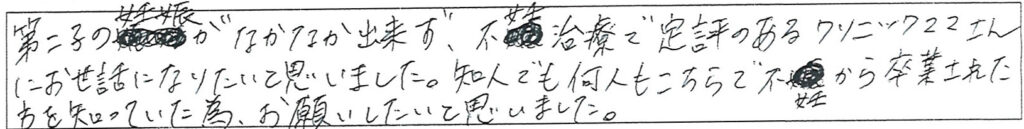 第二子の妊娠がなかなか出来ず、不妊治療で定評のあるクリニック22さん
にお世話になりたいと思いました。知人でも何人もこちらで不妊から卒業された
方を知っていた為、お願いしたいと思いました。